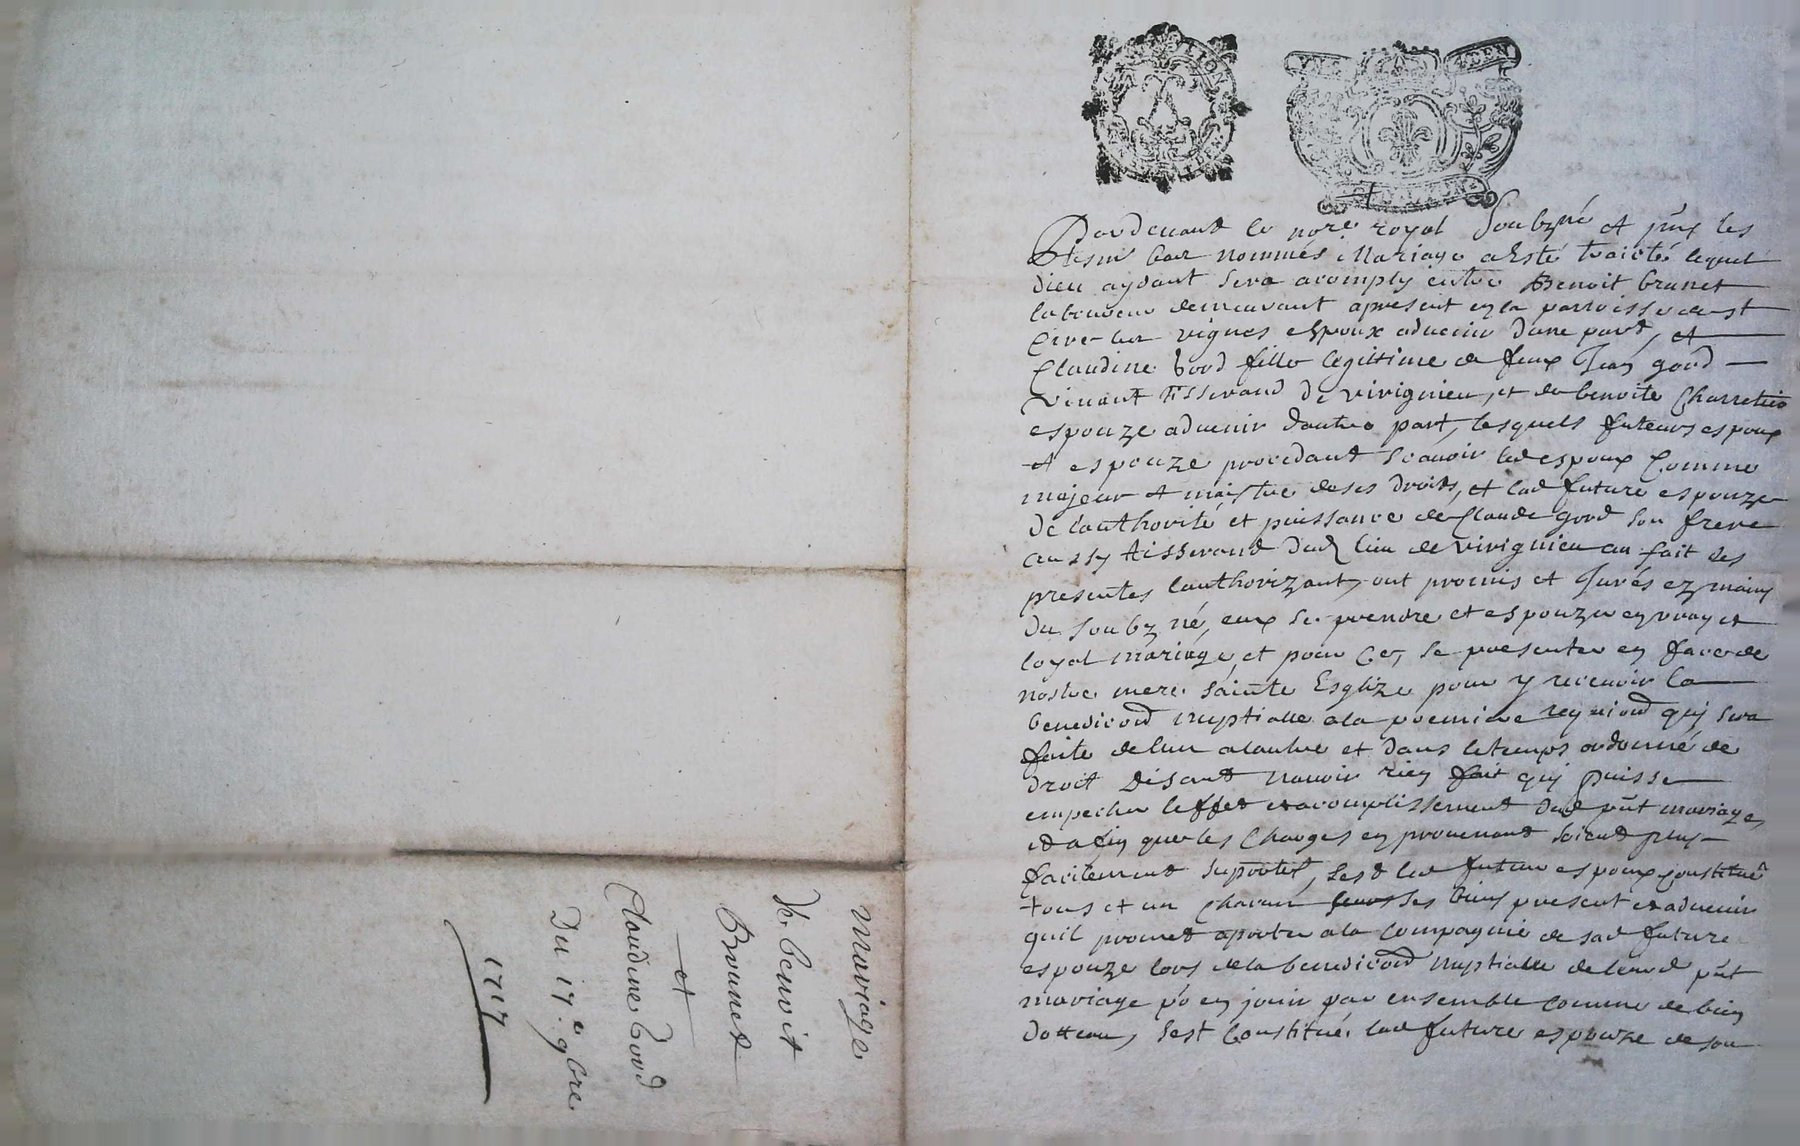 mariage
de benoit
Brunet
et
Claudine Gord
Du 17e 9bre
1717
Pardevant le nore royal Soubzné et pnt les
tesm bas nommés Mariage a Esté traicté lequel
dieu aydant sera acomply entre Benoit brunet
laboureur demeurant apresent en la parroisse de st
Cire les vignes espoux advenir dune part, et
Claudine Gord fille legittime de feux Jean gord
vivant tisserand de virignieu, et de benoite Charretie
espouze advenir dautre part, lesquels futeurs espoux
et espouze procedant scavoir led espoux Comme
majeur et maistre de ses droits, et lad future espouze
de lauthorité et puissance de Claude gord son frere
aussy tisserand dud lieu de virignieu au fait des
presentes lauthorizant, ont promis et Jurés ez mains
du soubzné, eux se prendre et espouzer en vray et
loyal mariage, et pour Ce, se presenter en face de
nostre mere sainte Esglize pour y recevoir la
benediction nuptialle a la premiere requi quy sera
faite de lun a lautre et dans le temps ordonné de
droit disant navoir rien fait quy puisse
empecher leffet et acomplissement dud pnt mariage,
et afin que les Charges en provenant soient plus
facilement suportés, sest led futeur espoux constitué
tous et un Chacun ses biens present et advenir
quil promet aporter a la Compagnie de sad future
espouze lors de la benediction nuptialle de leurd pnt
mariage po en jouir par ensemble comme de bien
dottaux, sest Constitué lad future espouze de son